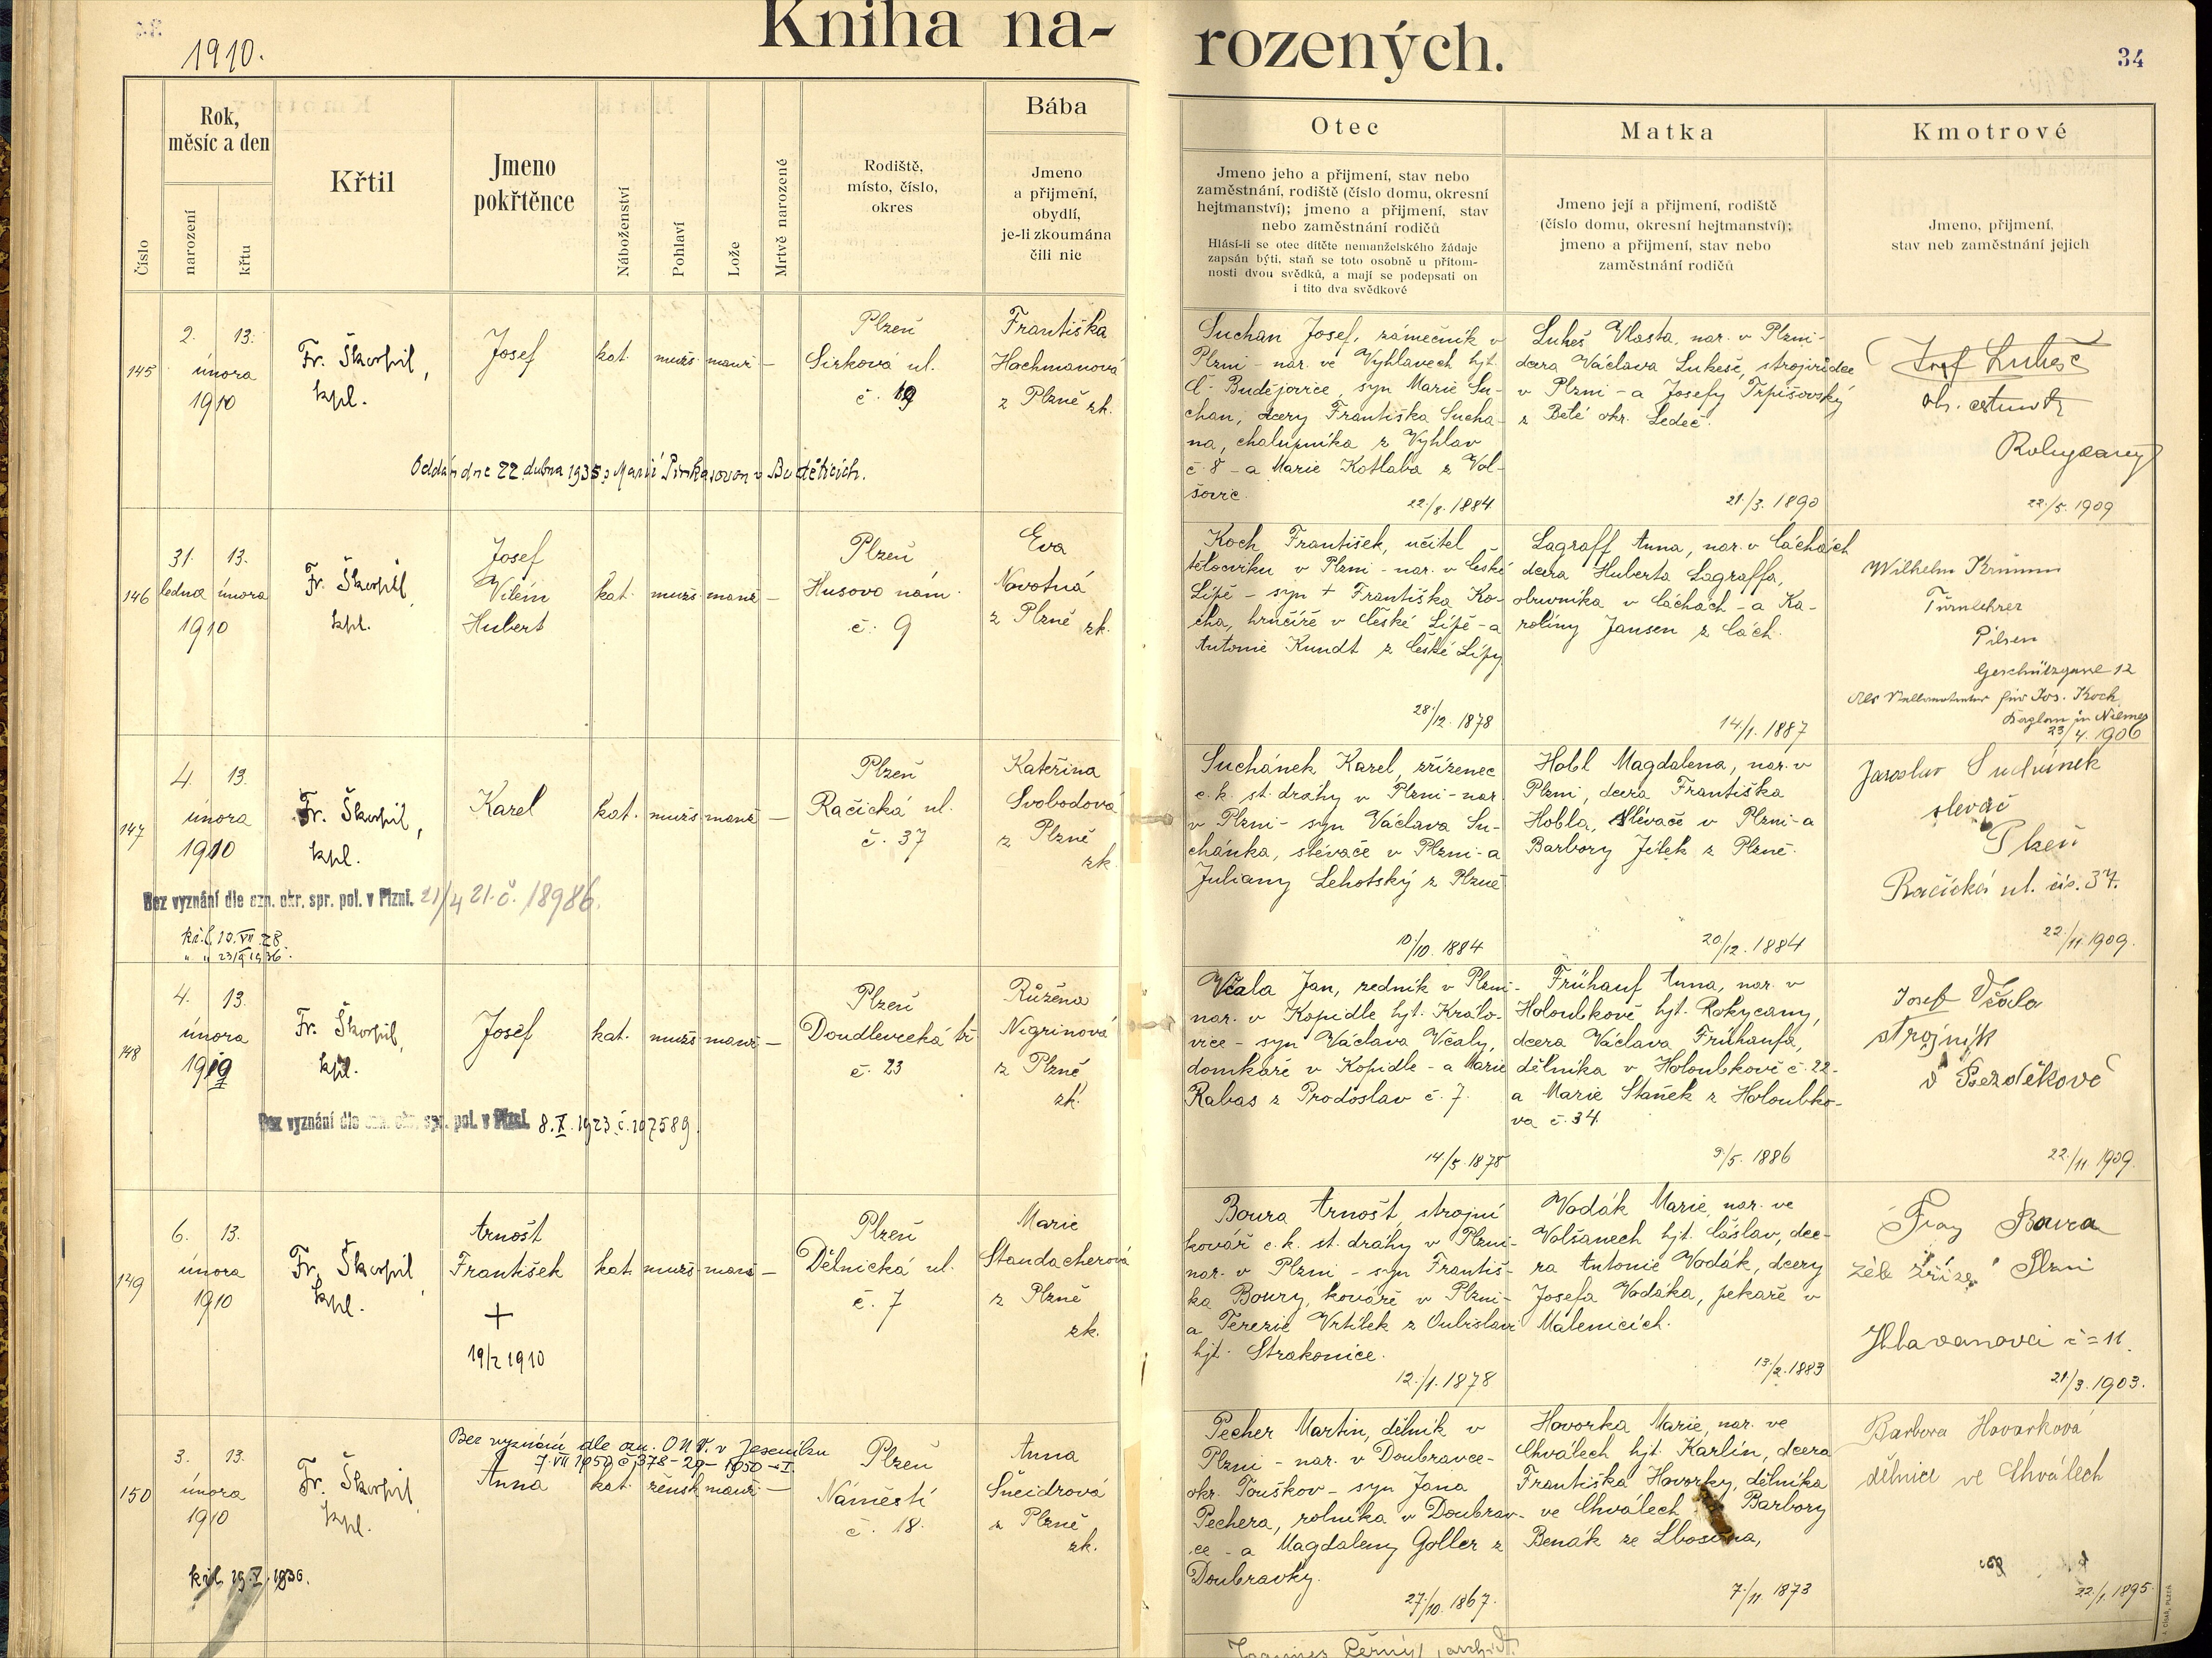 1910.
Kniha na-
rozených.
34
Číslo
Rok,
měsíc a den
narození
křtu
Křtil
Jmeno
pokřtěnce
Náboženství
Pohlaví
Lože
Mrtvě narozené
Rodiště,
místo, číslo,
okres
Bába
Jmeno
a přijmení,
obydlí,
je-li zkoumána
čili nic
Otec
Jmeno jeho a přijmení, stav nebo
zaměstnání, rodiště (číslo domu, okresní
hejtmanství); jmeno a přijmení, stav
nebo zaměstnání rodičů
Hlásí-li se otec dítěte nemanželského žádaje
zapsán býti, staň se toto osobně u přítom-
nosti dvou svědků, a mají se podepsati on
i tito dva svědkové
Matka
Jmeno její a přijmení, rodiště
(číslo domu, okresní hejtmanství);
jmeno a přijmení, stav nebo
zaměstnání rodičů
Kmotrové
Jmeno, přijmení,
stav neb zaměstnání jejich
145
2. 13.
února
1910
Fr. Škorpil,
kpl.
Josef
kat. mužs. manž. —
Plzeň
Sirková ul.
č. 19
Františka
Hachmanová
z Plzně zk.
Oddán dne 22. dubna 1935 s Marií Pinkasovou v Buděticích.
Suchan Josef, zámečník v
Plzni - nar. ve Vyhlavech hjt.
Č. Budějovice, syn Marie Su-
chan, dcery Františka Sucha-
na, chalupníka z Vyhlav
č. 8 - a Marie Kotlaba z Vol-
šovic.
22./8. 1884
Lukeš Vlasta, nar. v Plzni -
dcera Václava Lukeše, strojvůdce
v Plzni - a Josefy Trpišovský
z Bělé okr. Ledeč.
21./3. 1890
Josef Lukeš
Rokycany
22./5. 1909
146
31. 13.
ledna února
1910
Fr. Škorpil,
kpl.
Josef
Vilém
Hubert
kat. mužs. manž. —
Plzeň
Husovo nám.
č. 9
Eva
Novotná
z Plzně zk.
Koch František, učitel
tělocviku v Plzni - nar. v České
Lípě - syn + Františka Ko-
cha, hrnčíře v České Lípě - a
Antonie Kundt z České Lípy
28./12. 1878
Lagraff Anna, nar. v Cáchách
dcera Huberta Lagraffa,
obuvníka v Cáchách - a Ka-
roliny Jansen z Cách.
14./1. 1887
Wilhelm Krimm
Turnlehrer
Pilsen
Geschützgasse 12
Als Stellvertreter für Jos. Koch
Kaplan in Niemes
23/4. 1906
147
4. 13.
února
1910
Fr. Škorpil,
kpl.
Karel
kat. mužs. manž. —
Plzeň
Račická ul.
č. 37
Kateřina
Svobodová
z Plzně
zk.
Bez vyznání dle ozn. okr. spr. pol. v Plzni. 21/4 21. č. 18986.
kř. l. 10. VII. 28.
" " 23/9 1936.
Suchánek Karel, zřízenec
c. k. st. dráhy v Plzni - nar.
v Plzni - syn Václava Su-
chánka, slévače v Plzni - a
Juliany Lehotský z Plzně
10/10. 1884
Hobl Magdalena, nar. v
Plzni, dcera Františka
Hobla, slévače v Plzni - a
Barbory Jílek z Plzně.
20./12. 1884
Jaroslav Suchánek
slevač
Plzeň
Račická ul. čís. 37.
22./11. 1909.
148
4. 13.
února
1910
Fr. Škorpil,
kpl.
Josef
kat. mužs. manž. —
Plzeň
Doudlevecká tř.
č. 23
Růžena
Nigrinová
z Plzně
zk.
Bez vyznání dle ozn. okr. spr. pol. v Plzni. 8. X. 1923 č. 107589.
Včala Jan, zedník v Plzni -
nar. v Kopidle hjt. Králo-
vice - syn Václava Včaly,
domkáře v Kopidle - a Marie
Rabas z Prodoslav č. 7.
14./5. 1878
Frühauf Anna, nar. v
Holoubkově hjt. Rokycany,
dcera Václava Frühaufa,
dělníka v Holoubkově č. 22 -
a Marie Staněk z Holoubko-
va č. 34.
9./5. 1886
Josef Včala
strojník
v Bezděkově
22./11. 1909.
149
6. 13.
února
1910
Fr. Škorpil,
kpl.
Arnošt
František
+
19/2 1910
kat. mužs. manž. —
Plzeň
Dělnická ul.
č. 7
Marie
Standacherová
z Plzně
zk.
Boura Arnošt, strojní
kovář c. k. st. dráhy v Plzni -
nar. v Plzni - syn Františ-
ka Boury, kováře v Plzni -
a Terezie Vrtílek z
hjt. Strakonice.
12./1. 1878
Vodák Marie, nar. ve
Volšanech hjt. Čáslav, dce-
ra Antonie Vodák, dcery
Josefa Vodáka, pekaře v
Malenicích.
13./2. 1883
Boura
Plzni
č = 11.
21/3. 1903.
150
3. 13.
února
1910
Fr. Škorpil,
kpl.
Bez vyznání dle ozn. ONV. v Jeseníku
7. VII 1950 č. 378 - 29 - 1950 - I.
Anna
kat. žensk. manž. —
Plzeň
Náměstí
č. 18.
Anna
Šneidrová
z Plzně
zk.
kř. l. 19. V. 1936.
Pecher Martin, dělník v
Plzni - nar. v Doubravce -
okr. Touškov - syn Jana
Pechera, rolníka v Doubrav-
ce - a Magdaleny Goller z
Doubravky.
27./10. 1867.
Hovorka Marie, nar. ve
Chválech hjt. Karlín, dcera
Františka Hovorky, dělníka
ve Chválech a Barbory
Benák ze Lbosína,
7./11 1873
Barbora Hovorková
dělnice ve Chválech
22./1. 1895.